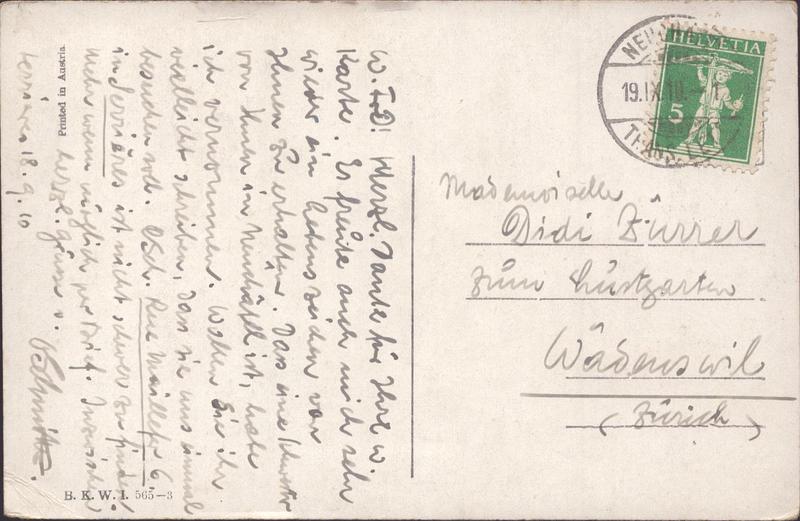 W. Frl.! Herzl. Dank für Ihre w.
Karte. Es freute auch mich sehr
wieder ein Lebenszeichen von
Ihnen zu erhalten. Das eine Schwester
von Ihnen in Neuchâtel ist, habe
ich vernommen. Wollen Sie ihr
vielleicht schreiben, dass sie uns einmal
besuchen soll. Rue Maillefer 6.
in Serrières ist nicht schwer zu finden.
wenn möglich per Brief. Inzwischen
herzl. Grüsse v.
Serrières 18.9.10
Printed in Austria.
B. K. W. I. 565-3
HELVETIA
5
19.IX.10.-1
Mademoiselle
Didi Zürrer
zum Lustgarten.
Wädenswil
(Zürich)